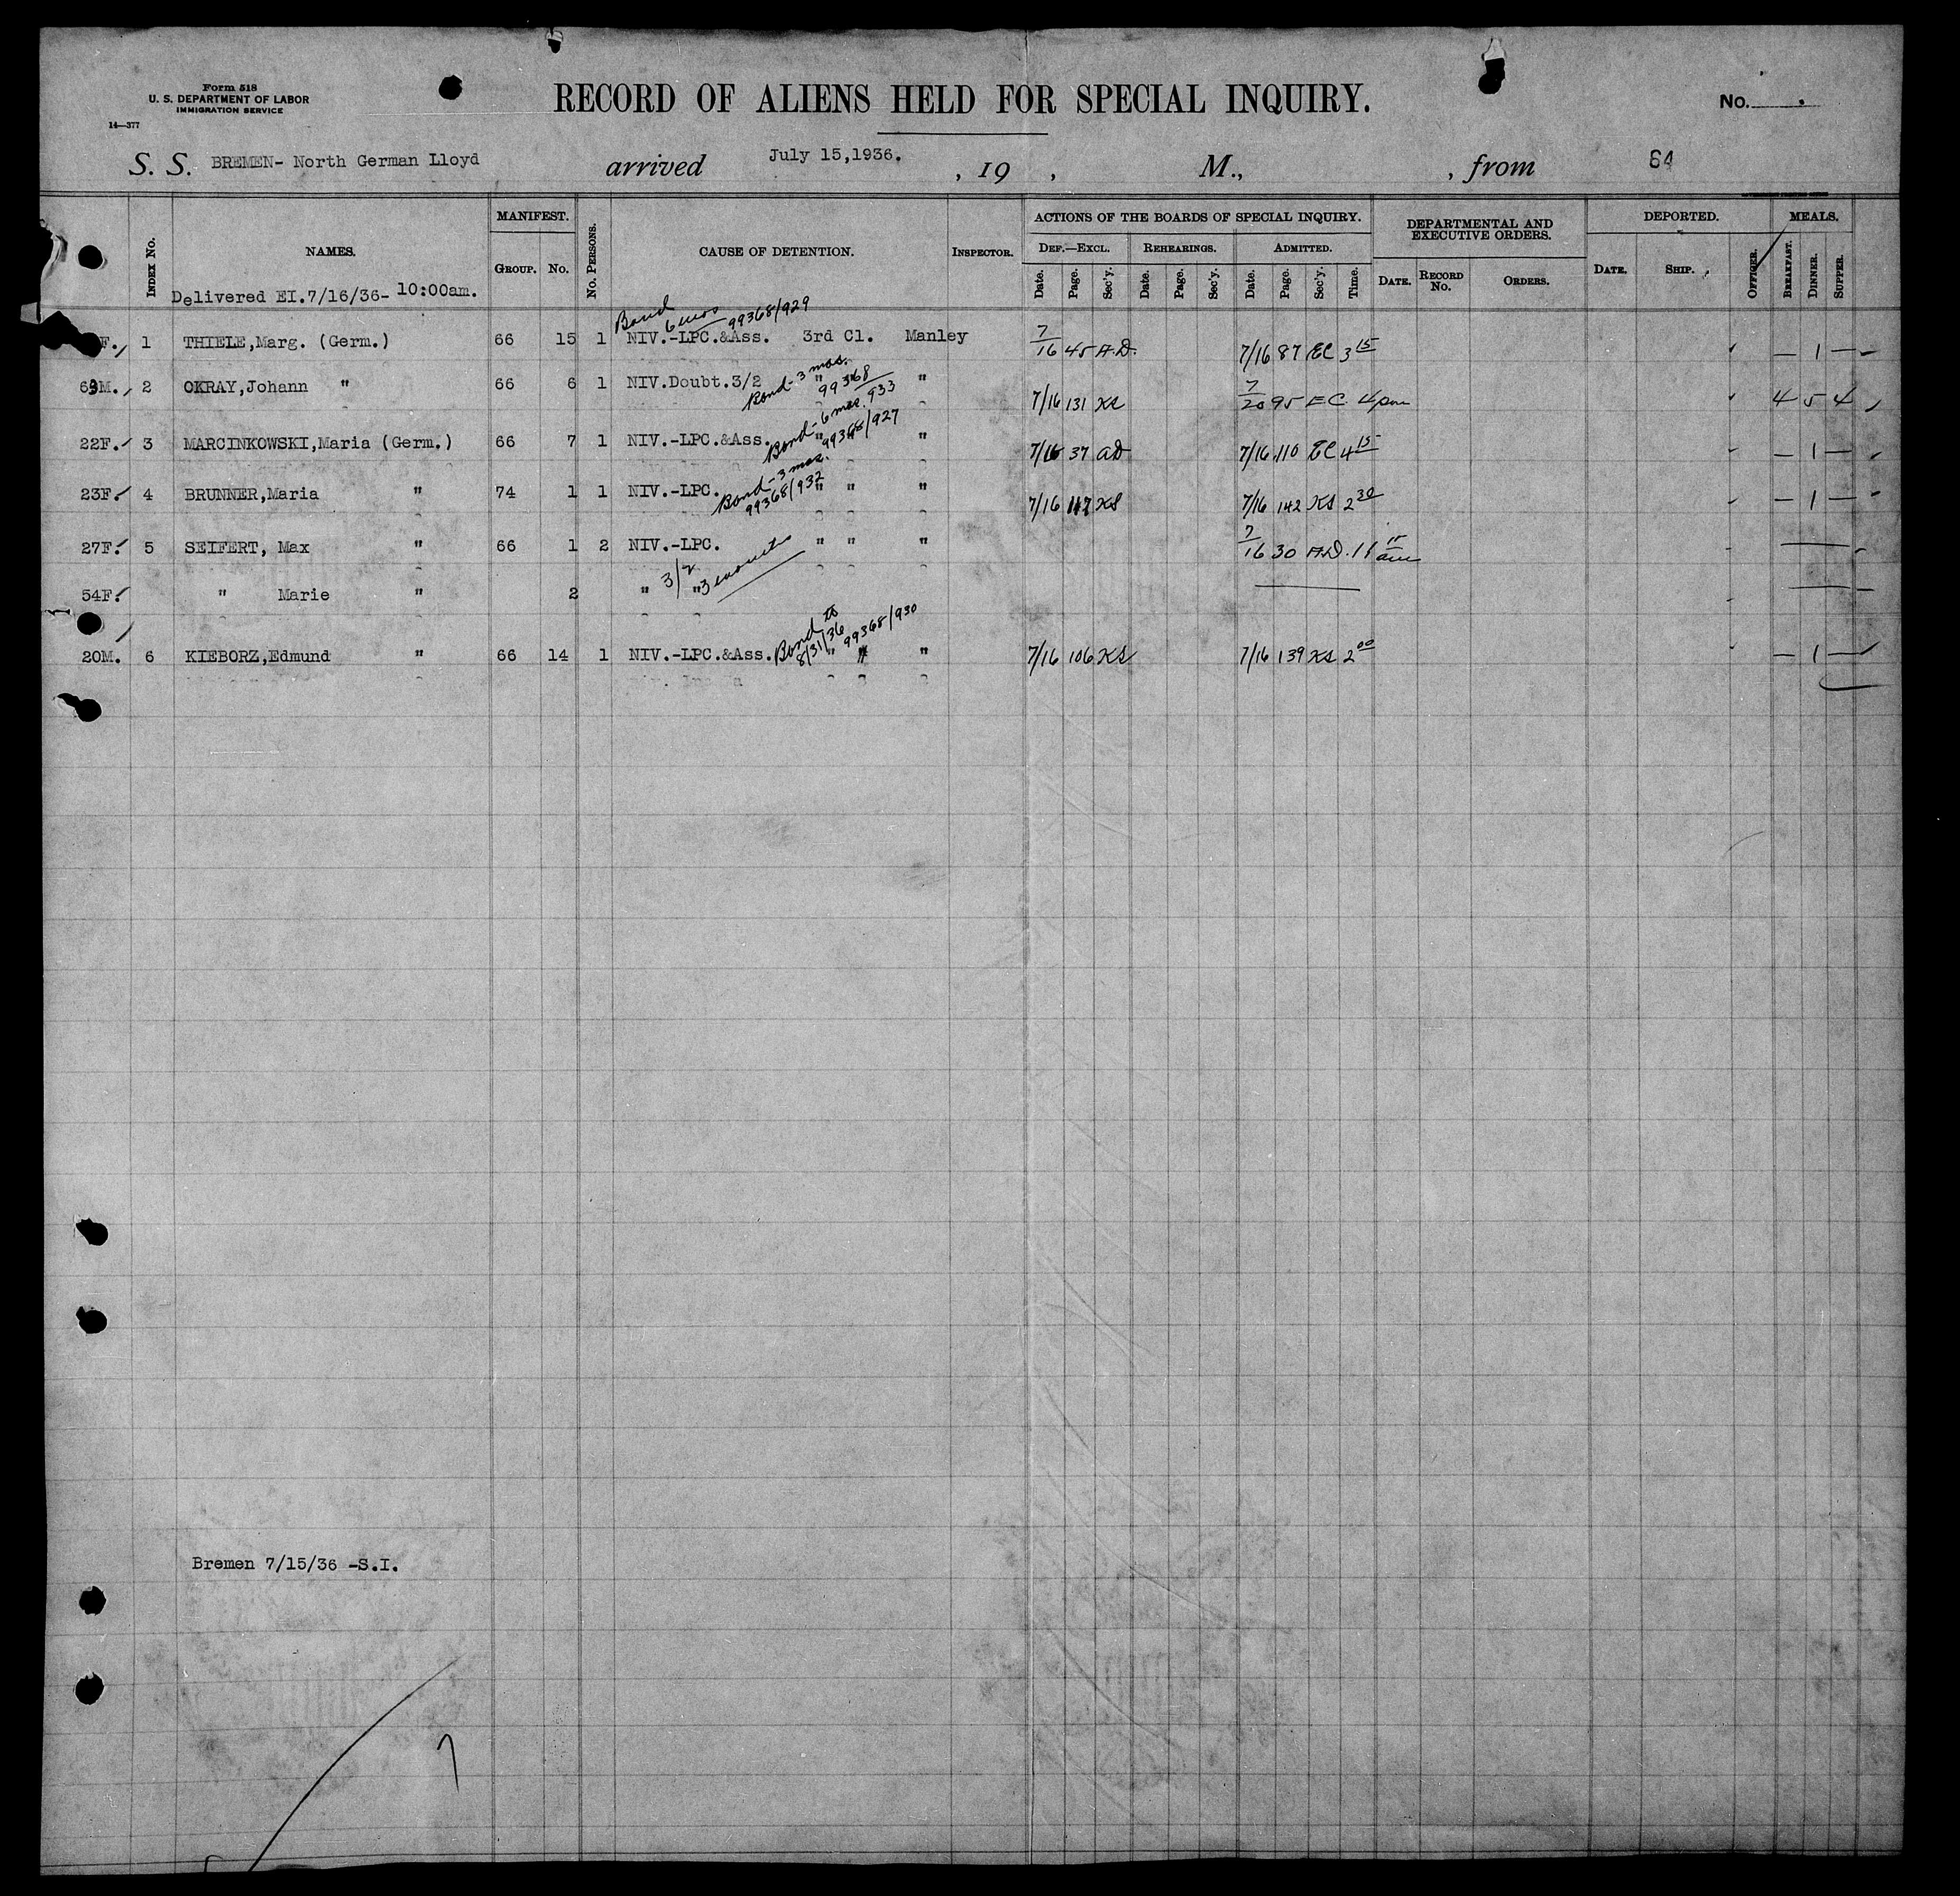 Form 518
U. S. DEPARTMENT OF LABOR
IMMIGRATION SERVICE
14—377
RECORD OF ALIENS HELD FOR SPECIAL INQUIRY.
No.
S. S. BREMEN- North German Lloyd arrived July 15,1936. , 19 , M., , from 64
INDEX No. NAMES. MANIFEST. GROUP. No. No. PERSONS. CAUSE OF DETENTION. INSPECTOR. ACTIONS OF THE BOARDS OF SPECIAL INQUIRY. DEF.—EXCL. REHEARINGS. ADMITTED. DEPARTMENTAL AND EXECUTIVE ORDERS. DEPORTED. MEALS.
Date. Page. Sec'y. Date. Page. Sec'y. Date. Page. Sec'y. Time. DATE. RECORD No. ORDERS. DATE. SHIP. OFFICER. BREAKFAST. DINNER. SUPPER.
Delivered EI.7/16/36- 10:00am.
Bond 6 mos 99368/929
F. 1 THIELE,Marg. (Germ.) 66 15 1 NIV.-LPC.&Ass. 3rd Cl. Manley 7/16 45 A.D. 7/16 87 EC 3 15 — 1 —
Bond - 3 mos. 99368/933
M. 2 OKRAY,Johann " 66 6 1 NIV.Doubt.3/2 " " " 7/16 131 KS 7/20 95 EC 4 pm 4 5 4
Bond - 6 mos. 99368/927
22F. 3 MARCINKOWSKI,Maria (Germ.) 66 7 1 NIV.-LPC.&Ass. " " " 7/16 37 AD 7/16 110 EC 4 15 — 1 —
Bond - 3 mos. 99368/932
23F. 4 BRUNNER,Maria " 74 1 1 NIV.-LPC. " " " 7/16 117 KS 7/16 142 KS 2 30 — 1 —
27F. 5 SEIFERT, Max " 66 1 2 NIV.-LPC. " " " 7/16 30 A.D. 11 15 am
54F. " Marie " 2 " 3/2 " 3 months
Bond to 8/31/36 99368/930
20M. 6 KIEBORZ,Edmund " 66 14 1 NIV.-LPC.&Ass. " " " 7/16 106 KS 7/16 139 KS 2 00 — 1 —
Bremen 7/15/36 -S.I.